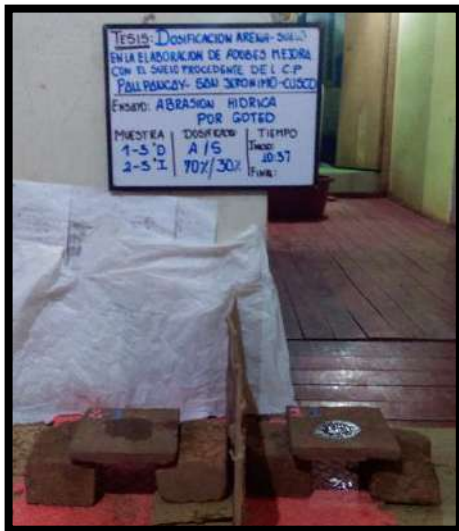 TESIS: DOSIFICACION ARENA-SUELO
EN LA ELABORACION DE ADOBES MEJORA
CON EL SUELO PROCEDENTE DEL C.P
PALLPANCAY- SAN JERONIMO-CUSCO
ENSAYO: ABRASION HIDRICA
POR GOTEO
MUESTRA DOSIFICADO TIEMPO
1-3°D A/S INICIO:
2-3°I 70%/30% 10:37
FINAL: